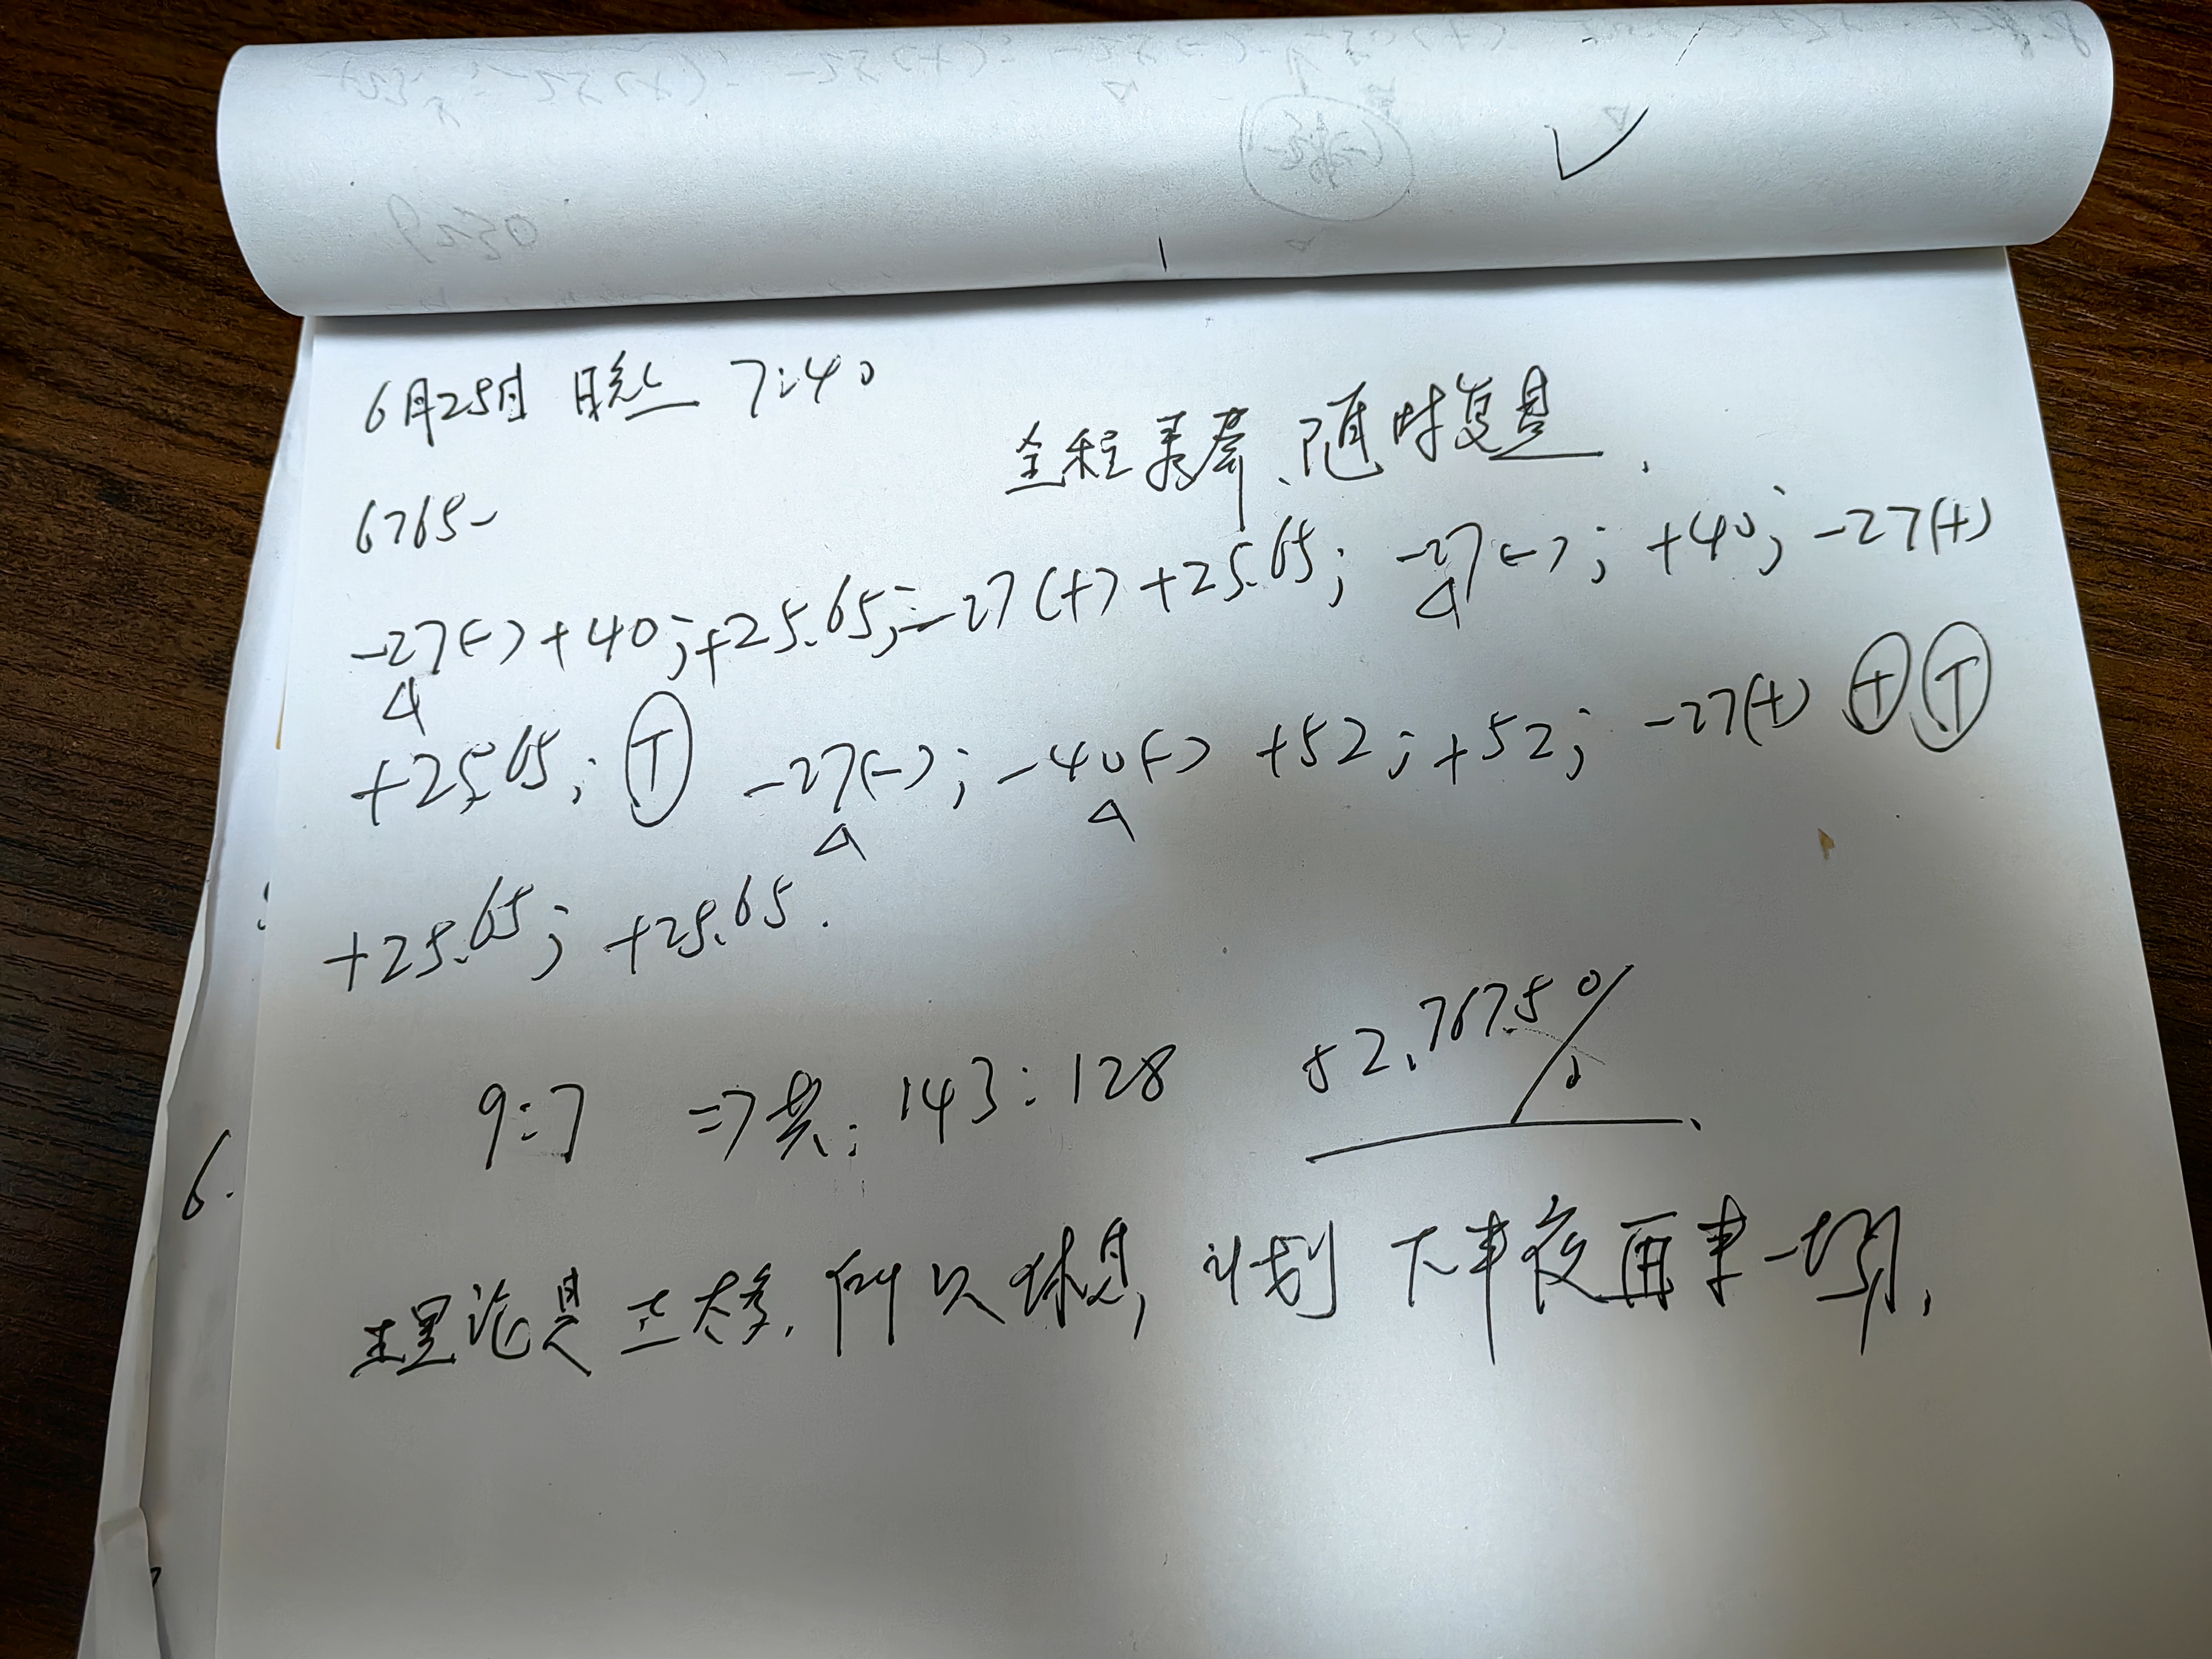 6月25日 晚上 7:40
全程录屏、随时复盘.
6765-
-27(-) +40; +25.65; -27(+) +25.65; -27(-); +40; -27(+)
+25.65; T -27(-); -40(-) +52; +52; -27(+) + T
+25.65; +25.65.
9:7 => 共: 143:128 52.7675%
理论是正太多, 所以休息, 计划下半夜再来一场.
6.